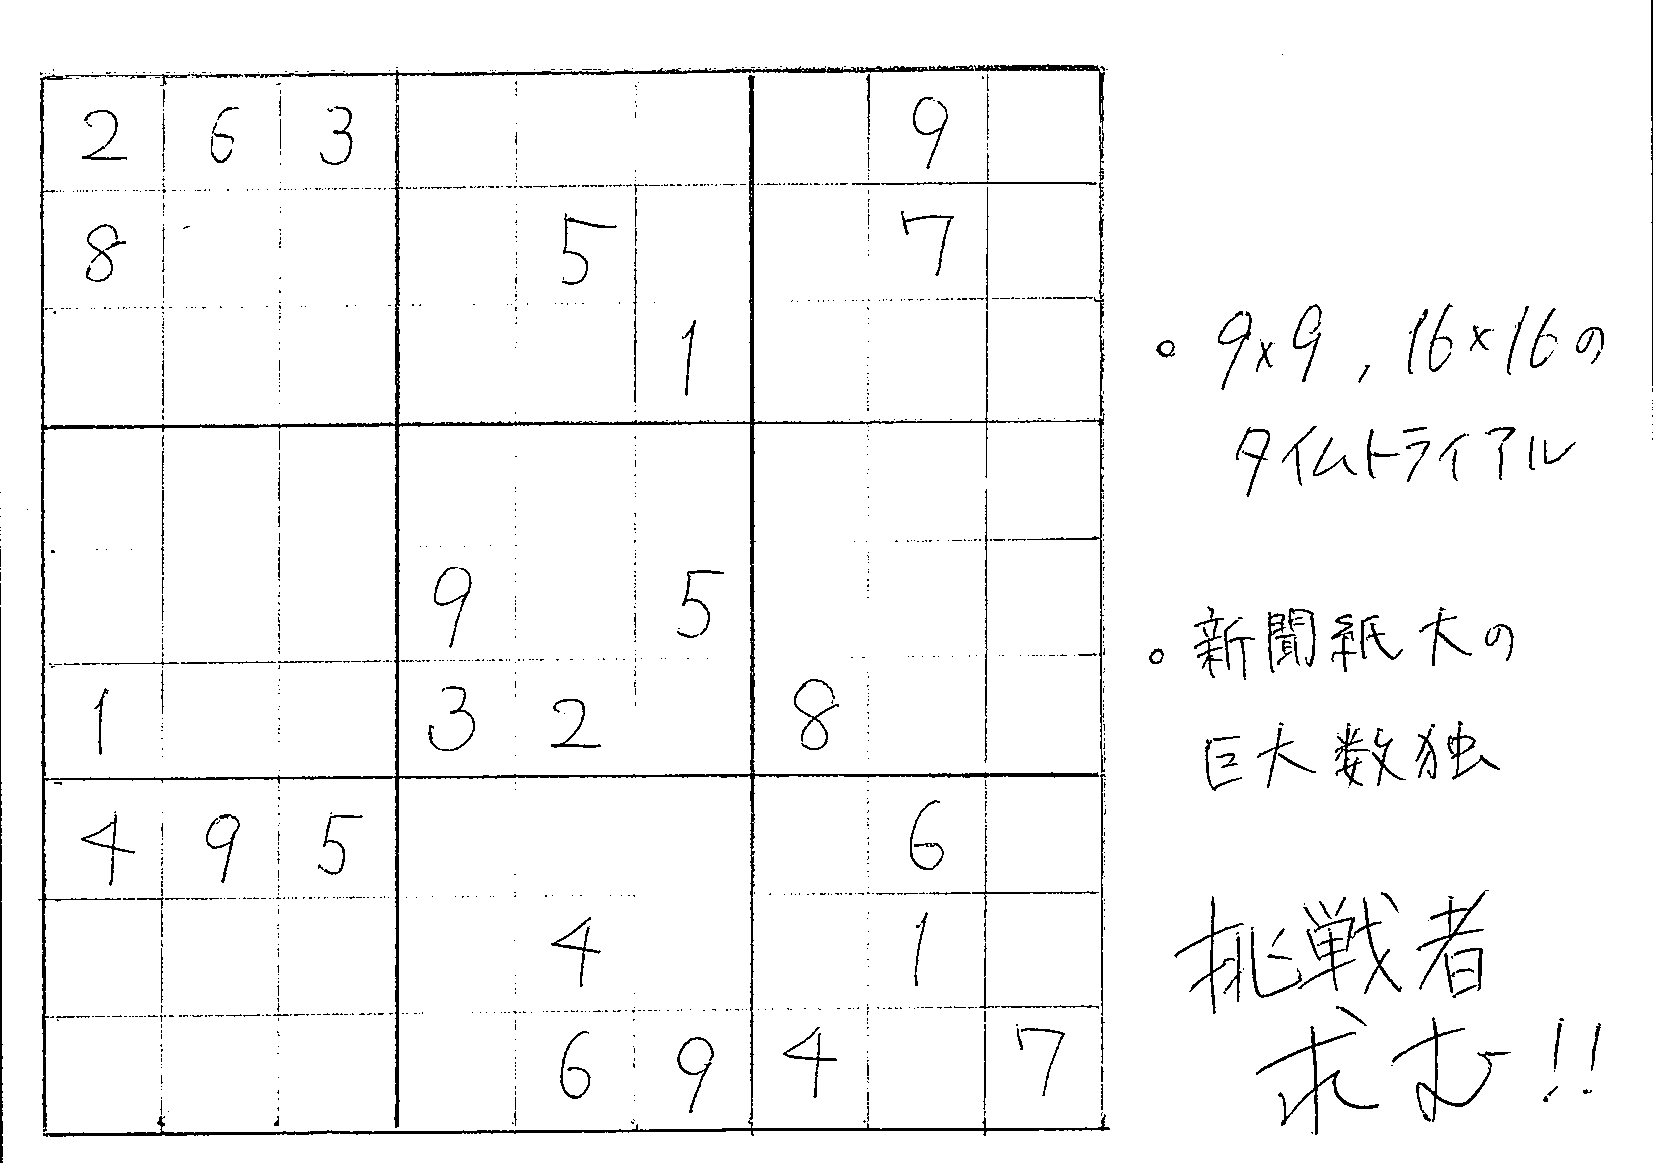 2 6 3 9
8 5 7
1
9 5
1 3 2 8
4 9 5 6
4 1
6 9 4 7
。9×9,16×16の
タイムトライアル
。新聞紙大の
巨大数独
挑戦者
求む!!